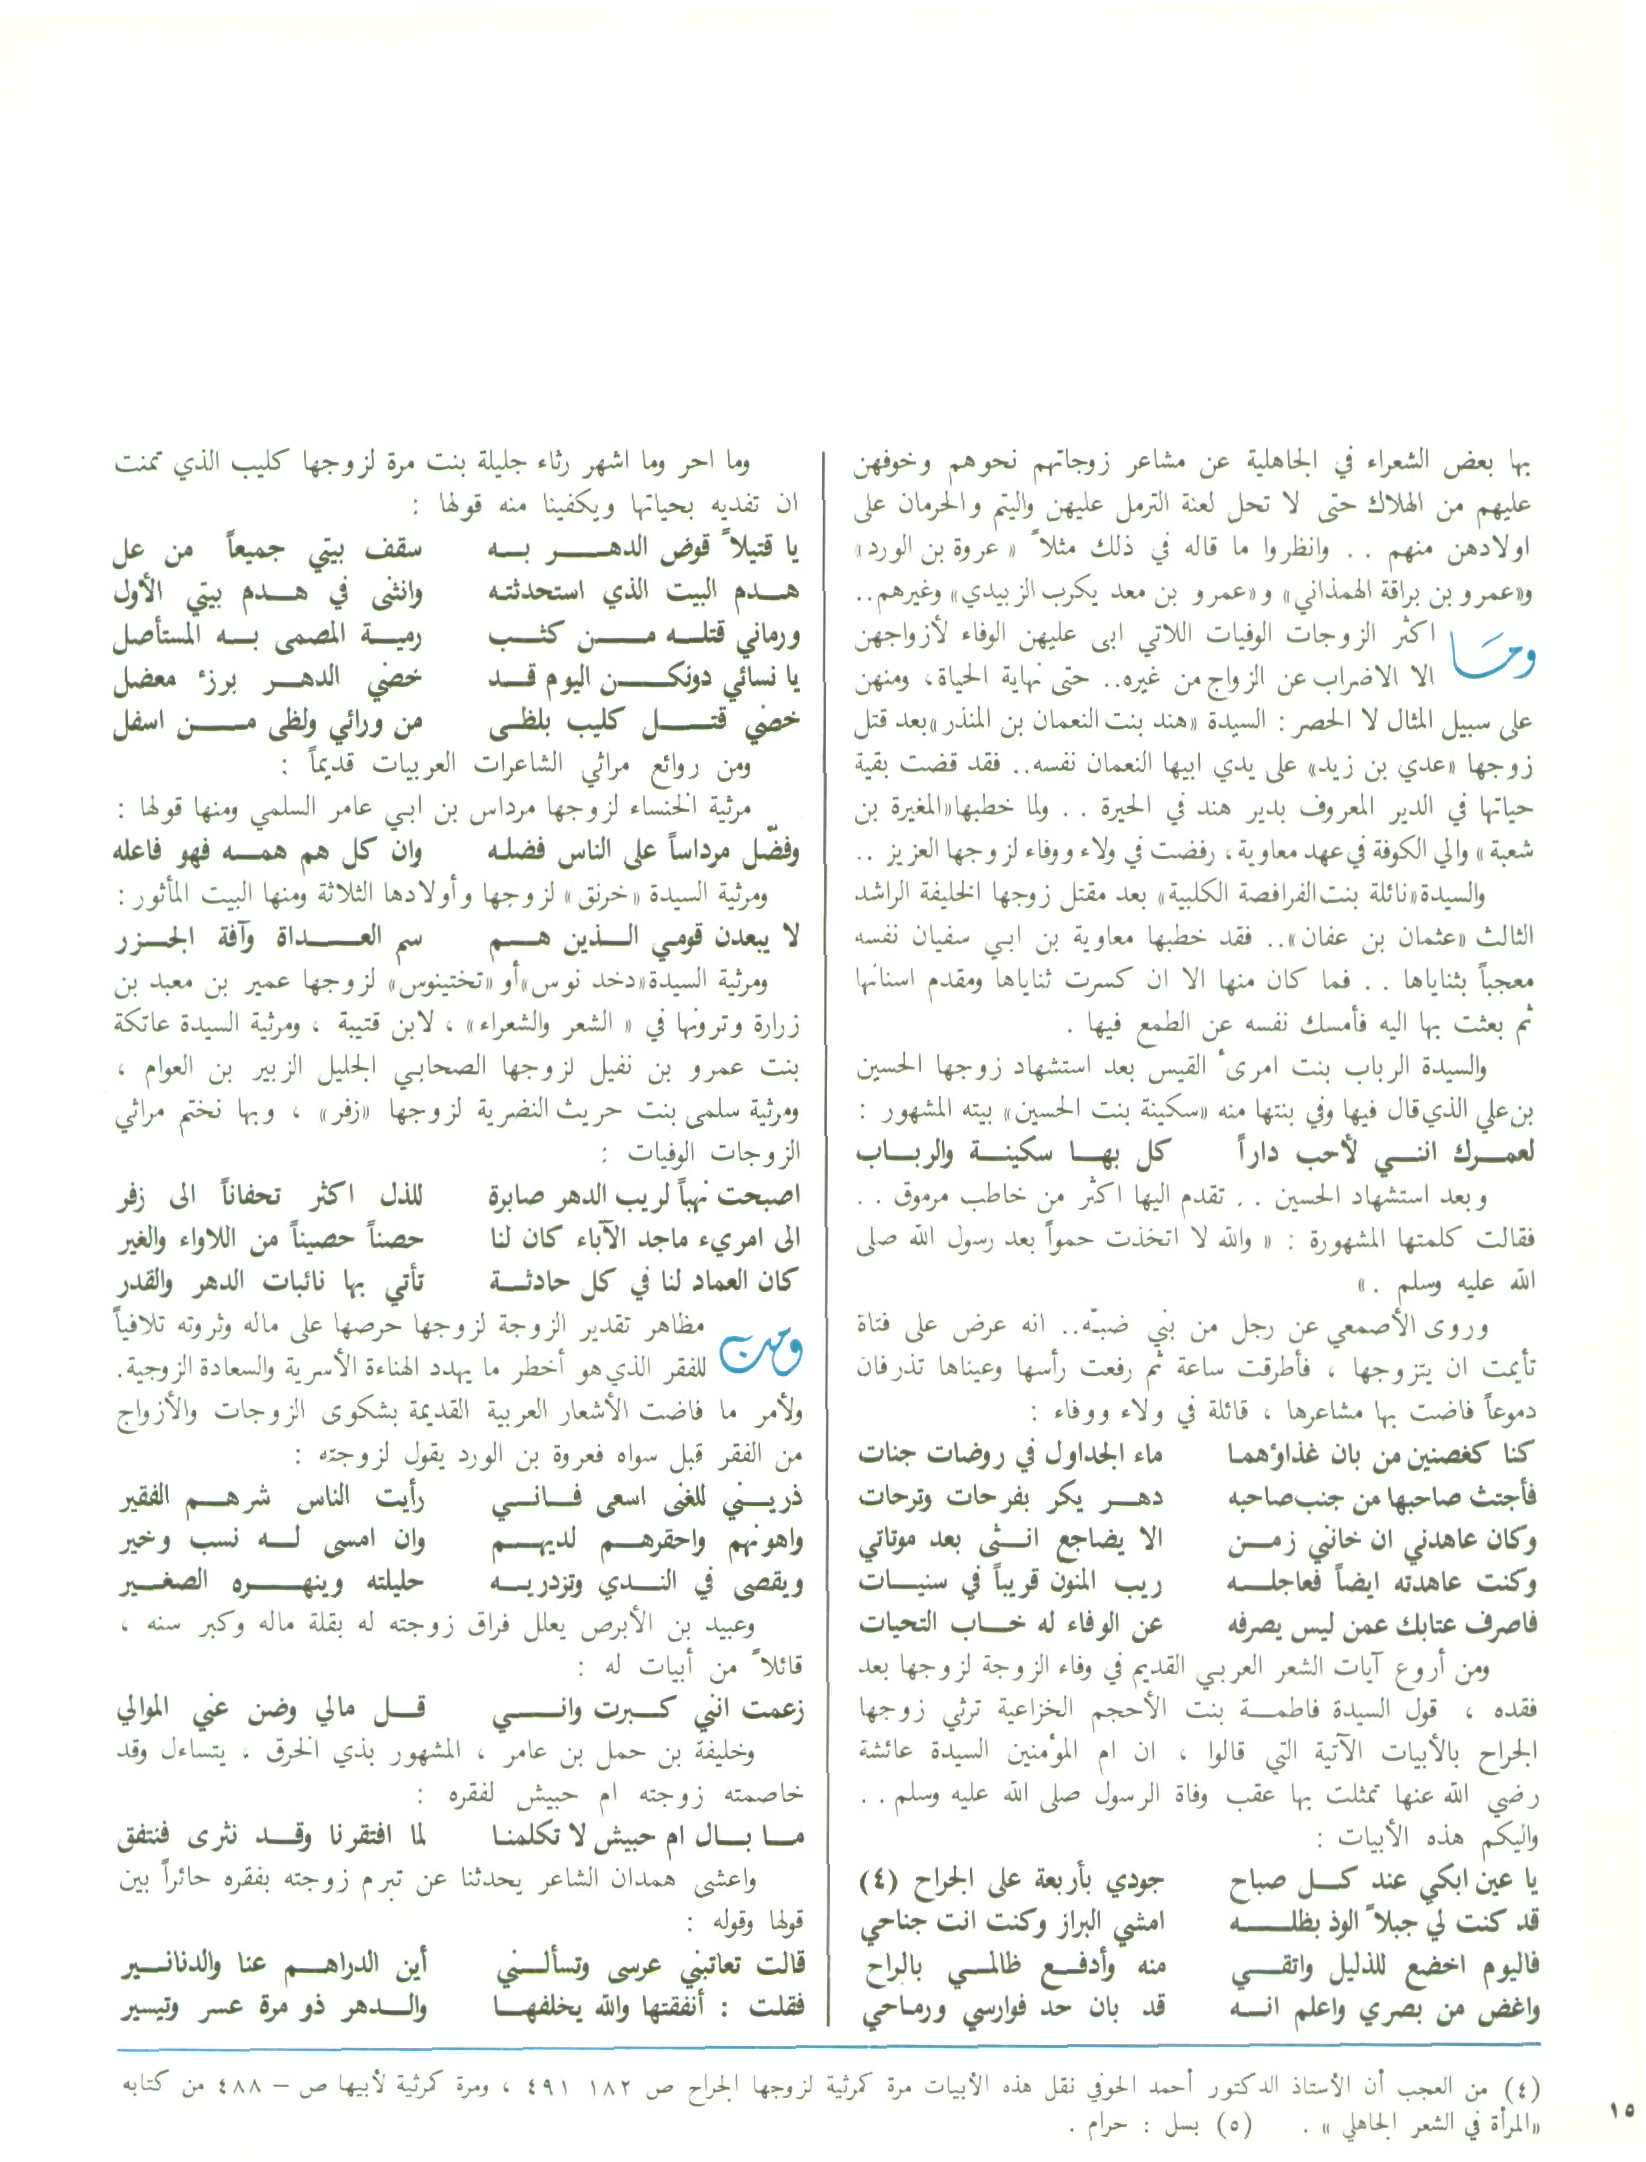 بها بعض الشعراء في الجاهلية عن مشاعر زوجاتهم نحوهم وخوفهن
عليهم من الهلاك حتى لا تحل لعنة الترمل عليهن واليتم والحرمان على
اولادهن منهم . . وانظروا ما قاله في ذلك مثلاً « عروة بن الورد»
و«عمرو بن براقة الهمذاني» و«عمرو بن معد يكرب الزبيدي» وغيرهم..
وما اكثر الزوجات الوفيات اللاتي ابى عليهن الوفاء لأزواجهن
الا الاضراب عن الزواج من غيره.. حتى نهاية الحياة، ومنهن
على سبيل المثال لا الحصر : السيدة «هند بنت النعمان بن المنذر »بعد قتل
زوجها «عدي بن زيد» على يدي ابيها النعمان نفسه.. فقد قضت بقية
حياتها في الدير المعروف بدير هند في الحيرة . . ولما خطبها«المغيرة بن
شعبة » والي الكوفة في عهد معاوية، رفضت في ولاء ووفاء لزوجها العزيز . .
والسيدة«نائلة بنت الفرافصة الكلبية» بعد مقتل زوجها الخليفة الراشد
الثالث «عثمان بن عفان».. فقد خطبها معاوية بن ابي سفيان نفسه
معجباً بثناياها . . فما كان منها الا ان كسرت ثناياها ومقدم اسنانها
ثم بعثت بها اليه فأمسك نفسه عن الطمع فيها .
والسيدة الرباب بنت امرىء القيس بعد استشهاد زوجها الحسين
بن علي الذي قال فيها وفي بنتها منه «سكينة بنت الحسين» بيته المشهور :
لعمرك انني لأحب داراً كل بها سكينة والرباب
وبعد استشهاد الحسين . . تقدم اليها اكثر من خاطب مرموق . .
فقالت كلمتها المشهورة : « والله لا اتخذت حمواً بعد رسول الله صلى
الله عليه وسلم . »
وروى الأصمعي عن رجل من بني ضبّه.. انه عرض على فتاة
تأيمت ان يتزوجها ، فأطرقت ساعة ثم رفعت رأسها وعيناها تذرفان
دموعاً فاضت بها مشاعرها ، قائلة في ولاء ووفاء :
كنا كغصنين من بان غذاؤهما ماء الجداول في روضات جنات
فأجتث صاحبها من جنب صاحبه دهر يكر بفرحات وترحات
وكان عاهدني ان خانني زمن الا يضاجع انثى بعد موتاتي
وكنت عاهدته ايضاً فعاجله ريب المنون قريباً في سنيات
فاصرف عتابك عمن ليس يصرفه عن الوفاء له خاب التحيات
ومن أروع آيات الشعر العربي القديم في وفاء الزوجة لزوجها بعد
فقده ، قول السيدة فاطمة بنت الأحجم الخزاعية ترثي زوجها
الجراح بالأبيات الآتية التي قالوا ، ان ام المؤمنين السيدة عائشة
رضي الله عنها تمثلت بها عقب وفاة الرسول صلى الله عليه وسلم . .
واليكم هذه الأبيات :
يا عين ابكي عند كل صباح جودي بأربعة على الجراح (٤)
قد كنت لي جبلاً الوذ بظله امشي البراز وكنت انت جناحي
فاليوم اخضع للذليل واتقي منه وأدفع ظالمي بالراح
واغض من بصري واعلم انه قد بان حد فوارسي ورماحي
وما احر وما اشهر رثاء جليلة بنت مرة لزوجها كليب الذي تمنت
ان تفديه بحياتها ويكفينا منه قولها :
يا قتيلاً قوض الدهر به سقف بيتي جميعاً من عل
هدم البيت الذي استحدثته وانثنى في هدم بيتي الأول
ورماني قتله من كثب رمية المصمى به المستأصل
يا نسائي دونكن اليوم قد خضي الدهر برزء معضل
خضني قتل كليب بلظى من ورائي ولظى من اسفل
ومن روائع مراثي الشاعرات العربيات قديماً :
مرثية الخنساء لزوجها مرداس بن ابي عامر السلمي ومنها قولها :
وفضّل مرداساً على الناس فضله وان كل هم همه فهو فاعله
ومرثية السيدة «خرنق » لزوجها وأولادها الثلاثة ومنها البيت المأثور :
لا يبعدن قومي الذين هم سم العداة وآفة الجزر
ومرثية السيدة«دخد نوس»أو «تختينوس» لزوجها عمير بن معبد بن
زرارة وترونها في « الشعر والشعراء» ، لابن قتيبة ، ومرثية السيدة عاتكة
بنت عمرو بن نفيل لزوجها الصحابي الجليل الزبير بن العوام ،
ومرثية سلمى بنت حريث النضرية لزوجها «زفر» ، وبها نختم مراثي
الزوجات الوفيات :
اصبحت نهباً لريب الدهر صابرة للذل اكثر تحفاناً الى زفر
الى امريء ماجد الآباء كان لنا حصناً حصيناً من اللاواء والغير
كان العماد لنا في كل حادثة تأتي بها نائبات الدهر والقدر
ومن مظاهر تقدير الزوجة لزوجها حرصها على ماله وثروته تلافياً
للفقر الذي هو أخطر ما يهدد الهناءة الأسرية والسعادة الزوجية.
ولأمر ما فاضت الأشعار العربية القديمة بشكوى الزوجات والأزواج
من الفقر قبل سواه فعروة بن الورد يقول لزوجته :
ذريني للغنى اسعى فاني رأيت الناس شرهم الفقير
واهونهم واحقرهم لديهم وان امسى له نسب وخير
ويقصى في الندي وتزدريه حليلته وينهره الصغير
وعبيد بن الأبرص يعلل فراق زوجته له بقلة ماله وكبر سنه ،
قائلاً من أبيات له :
زعمت انني كبرت واني قل مالي وضن عني الموالي
وخليفة بن حمل بن عامر ، المشهور بذي الخرق ، يتساءل وقد
خاصمته زوجته ام حبيش لفقره :
ما بال ام حبيش لا تكلمنا لما افتقرنا وقد نثرى فنتفق
واعشى همدان الشاعر يحدثنا عن تبرم زوجته بفقره حائراً بين
قولها وقوله :
قالت تعاتبني عرسى وتسألني أين الدراهم عنا والدنانير
فقلت : أنفقتها والله يخلفها والدهر ذو مرة عسر وتيسير
(٤) من العجب أن الأستاذ الدكتور أحمد الحوفي نقل هذه الأبيات مرة كمرثية لزوجها الجراح ص ١٨٢ ٤٩١ ، ومرة كمرثية لأبيها ص – ٤٨٨ من كتابه
«المرأة في الشعر الجاهلي » . (٥) بسل : حرام .
١٥